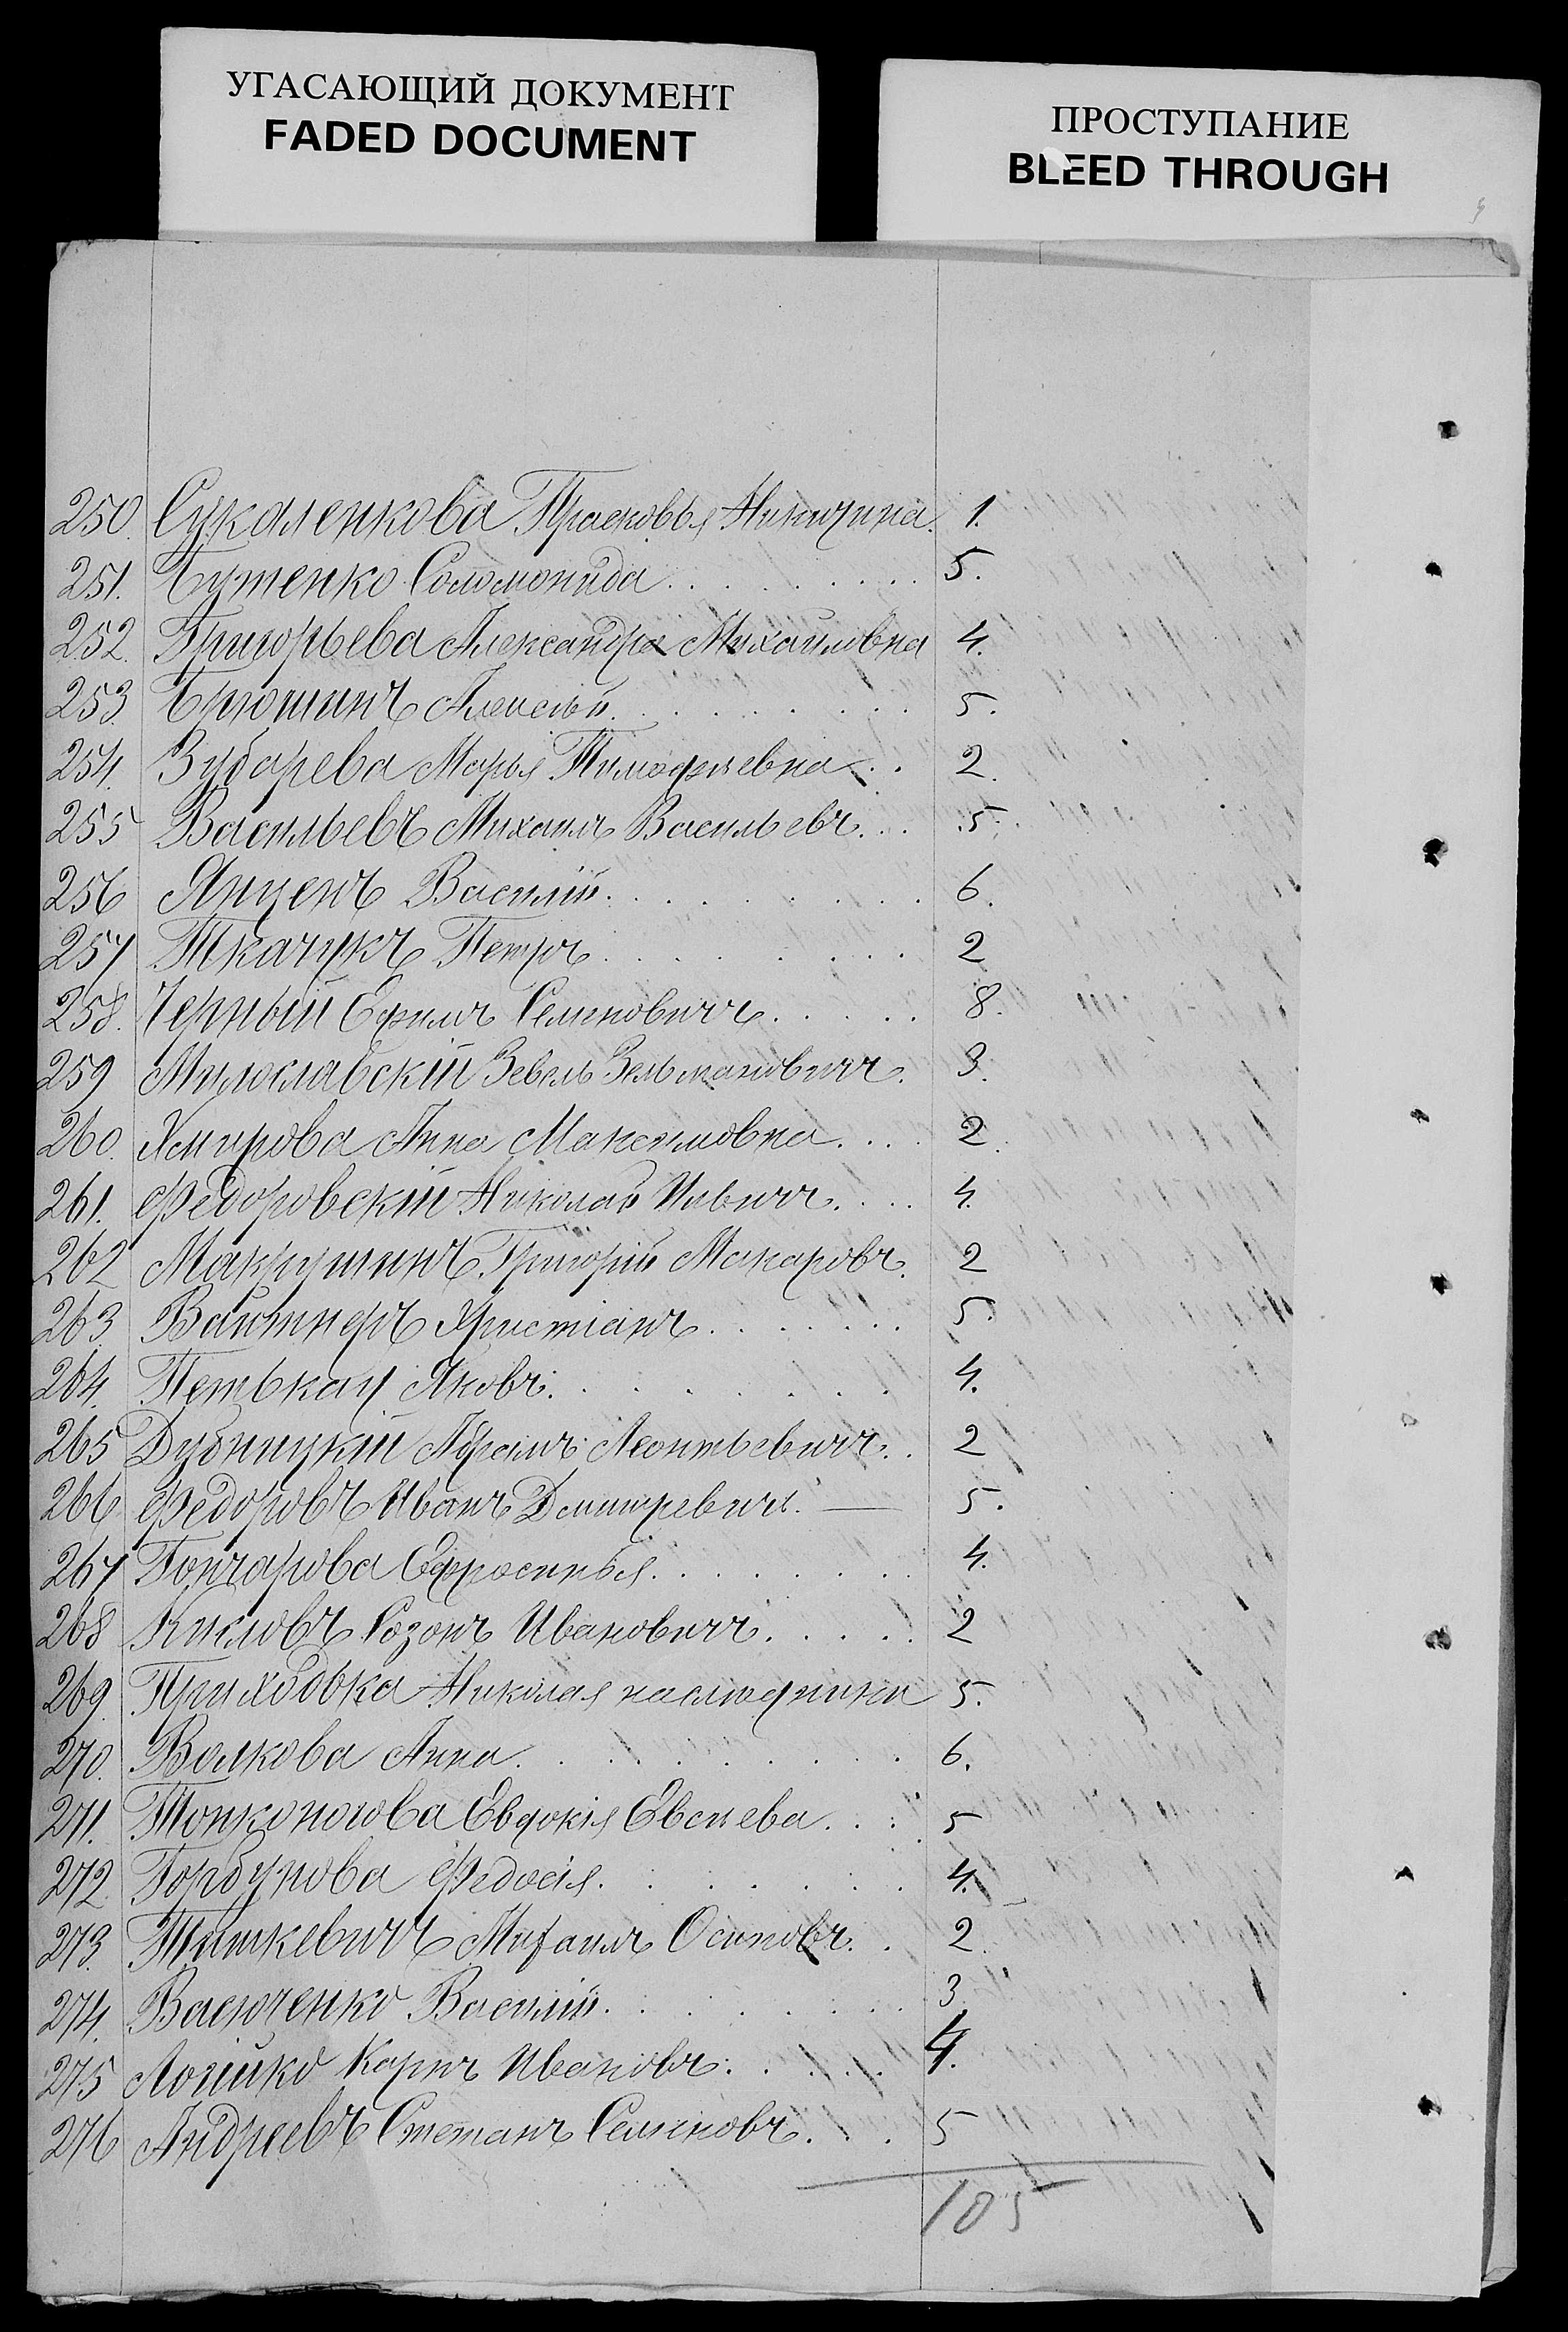 УГАСАЮЩИЙ ДОКУМЕНТ
FADED DOCUMENT
ПРОСТУПАНИЕ
BLEED THROUGH
250. Сукаленкова Прасковья Никитина. 1.
251. Бутенко Соломонида. 5.
252. Григорьева Александра Михайловна 4.
253. Брюшинъ Алексѣй. 5.
254. Зубарева Марья Тимофѣевна. 2.
255 Васильевъ Михаилъ Васильевъ. 5.
256 Янценъ Василій. 6.
257 Ткачукъ Петръ. 2
258. Черный Ефимъ Семеновичъ. 8.
259 Милославскій Зевель Зельмановичъ. 3.
260. Хмирова Анна Максимовна. 2.
261. Федоровскій Николай Ильичъ. 4.
262 Макрушинъ Григорій Макаровъ. 2
263. Вайтнеръ Христіанъ. 5.
264. Петькау Яковъ. 4.
265 Дубницкій Абрамъ Леонтьевичъ. 2
266 Федоровъ Иванъ Дмитревичъ. — 5.
267 Гончарова Ефросинья. 4.
268 Кисловъ Созонъ Ивановичъ. 2
269. Приходька Николая наслѣдники 5.
270. Волкова Анна. 6.
271. Тонконогова Евдокія Евсѣева. 5
272. Горбунова Федосія. 4.
273. Тишкевичъ Михаилъ Осиповъ. 2.
274. Васюченко Василій. 3.
275 Логийко Карпъ Ивановъ. 4.
276 Андреевъ Степанъ Семеновъ. 5
105